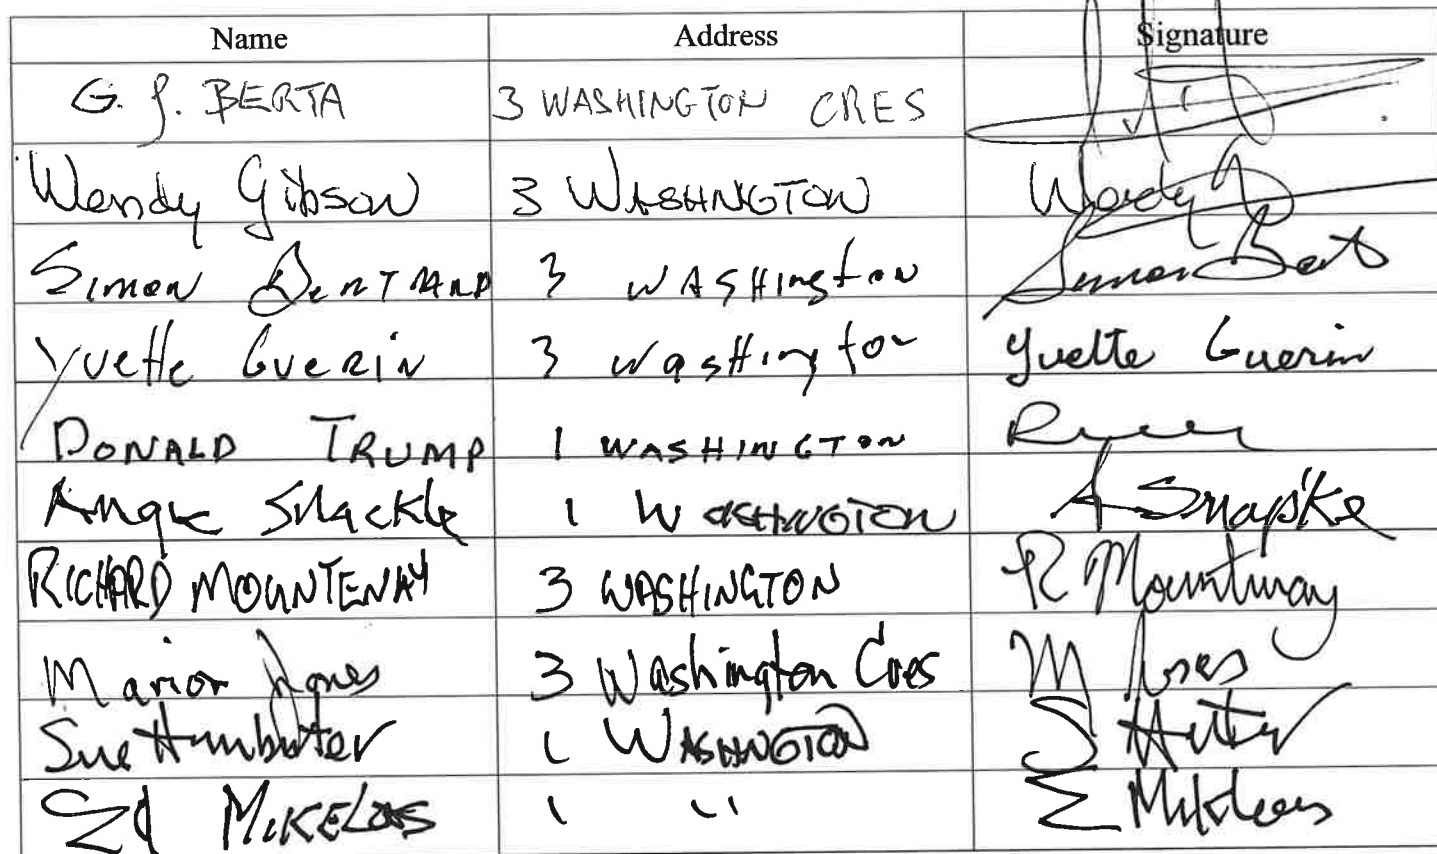 Name Address Signature
G. J. BERTA 3 WASHINGTON CRES
Wendy Gibson 3 WASHINGTON Wendy
Simon BERTRAND 3 WASHington Simon Bert
Yvette Guerin 3 WasHington Yvette Guerin
DONALD TRUMP 1 WASHINGTON
Angie Shackle 1 WASHINGTON A
RICHARD MOUNTENAY 3 WASHINGTON R Mountenay
Marion Jones 3 Washington Cres M Jones
Sue 1 WASHINGTON S
Ed MIKELOAS 1 " E